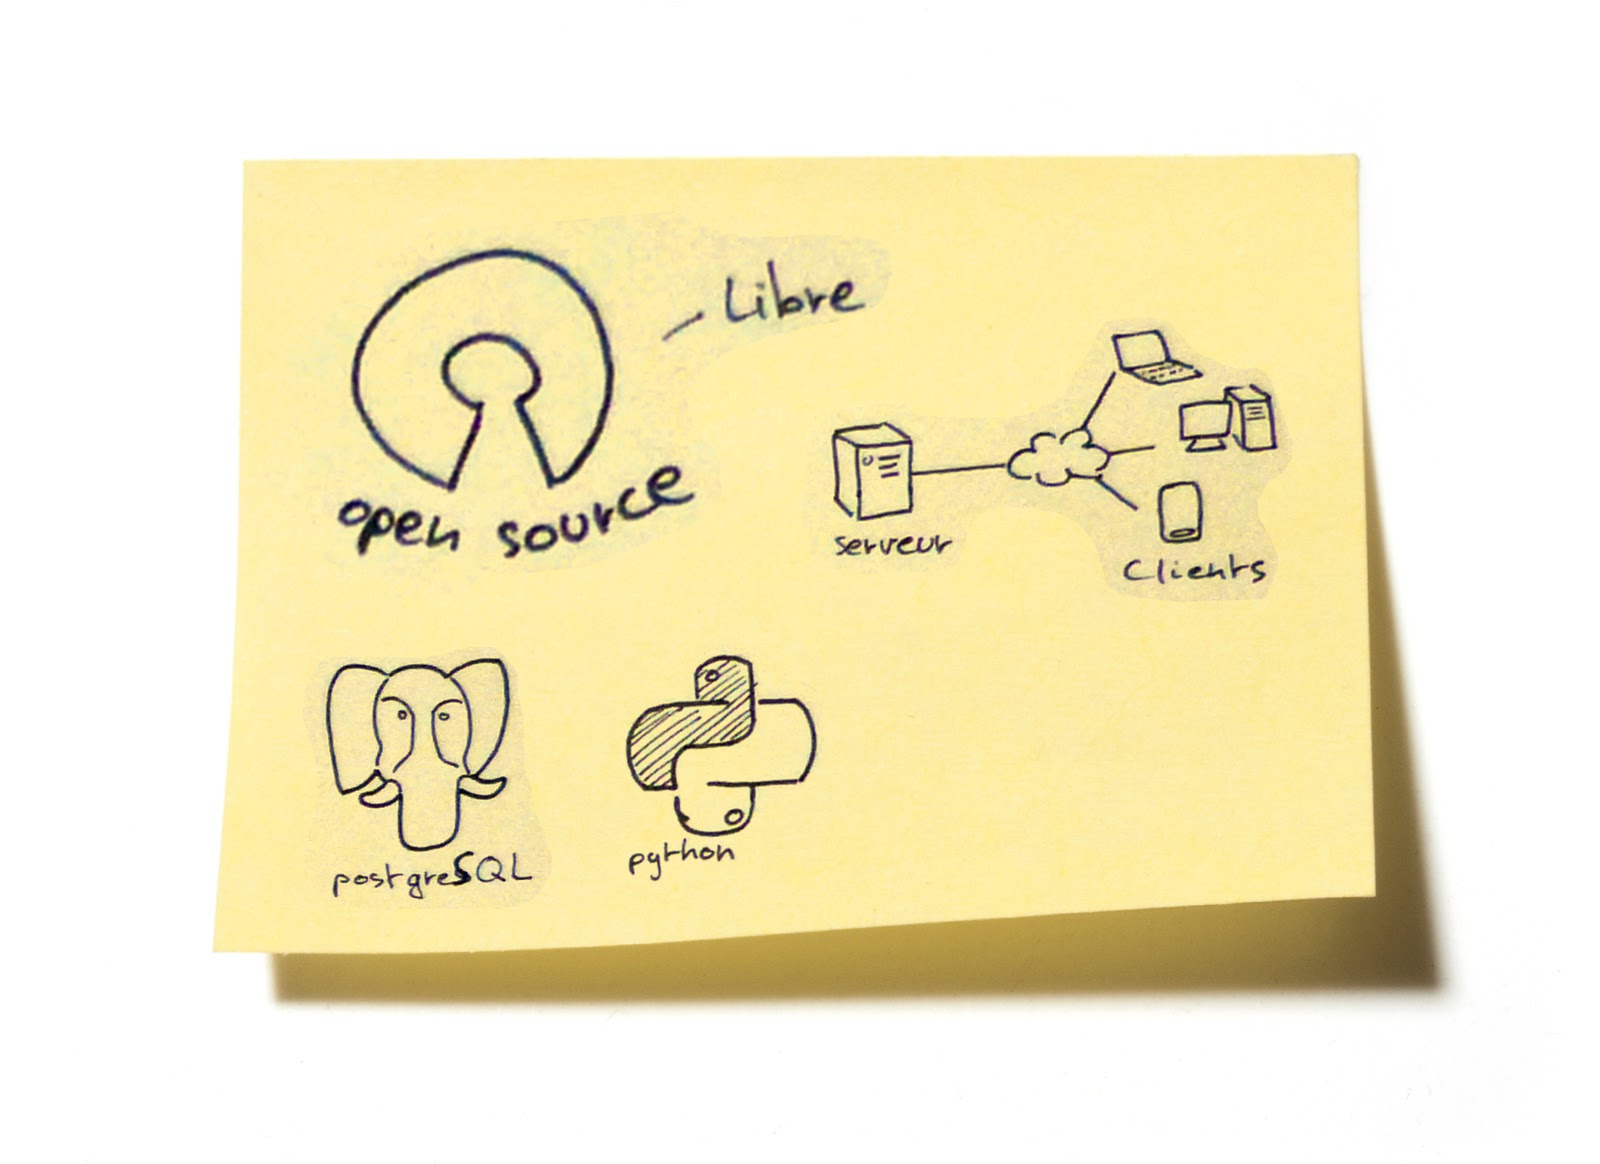 - Libre
open source
serveur
Clients
postgreSQL
python